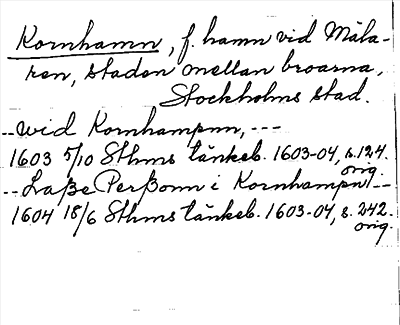 Kornhamn, f. hamn vid Mäla-
ren, staden mellan broarna,
Stockholms stad.
-- wid Kornhampnn, ---
1603 5/10 Sthms tänkeb. 1603-04, s. 124.
orig.
-- Laße Perßonn i Kornhampn --
1604 18/6 Sthms tänkeb. 1603-04, s. 242.
orig.